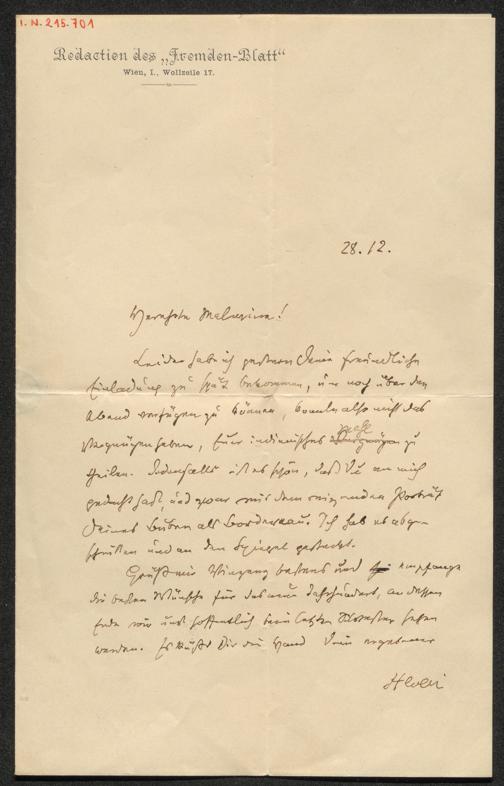 I.N. 215.701
Redaction des „Fremden-Blatt“
Wien, I., Wollzeile 17.
28.12.
Verehrte Melusine!
Leider hab ich gestern Deine freundliche
Einladung zu spät bekommen, um noch über den
Abend verfügen zu können, konnte also nicht das
Vergnügen haben, Euer indianisches zu
theilen. Jedenfalls ist es schön, daß Du an mich
gedacht hast, und zwar mit dem reizenden Porträt
Deines Buben als Bordereau. Ich hab es abge-
schnitten und an den Spiegel gesteckt.
Grüß mir bestens und empfange
die besten Wünsche für das neue Jahrhundert, an dessen
Ende wir uns hoffentlich beim letzten Sylvester sehen
werden. Es küßt Dir die Hand Dein ergebener
Hevesi